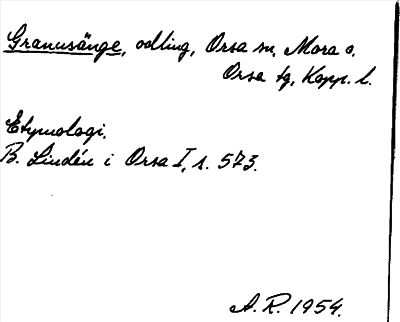 Granusänge, odling, Orsa sn, Mora o.
Orsa tg, Kopp. l.
Etymologi.
B. Lindén i Orsa I, s. 573.
A.R. 1954.